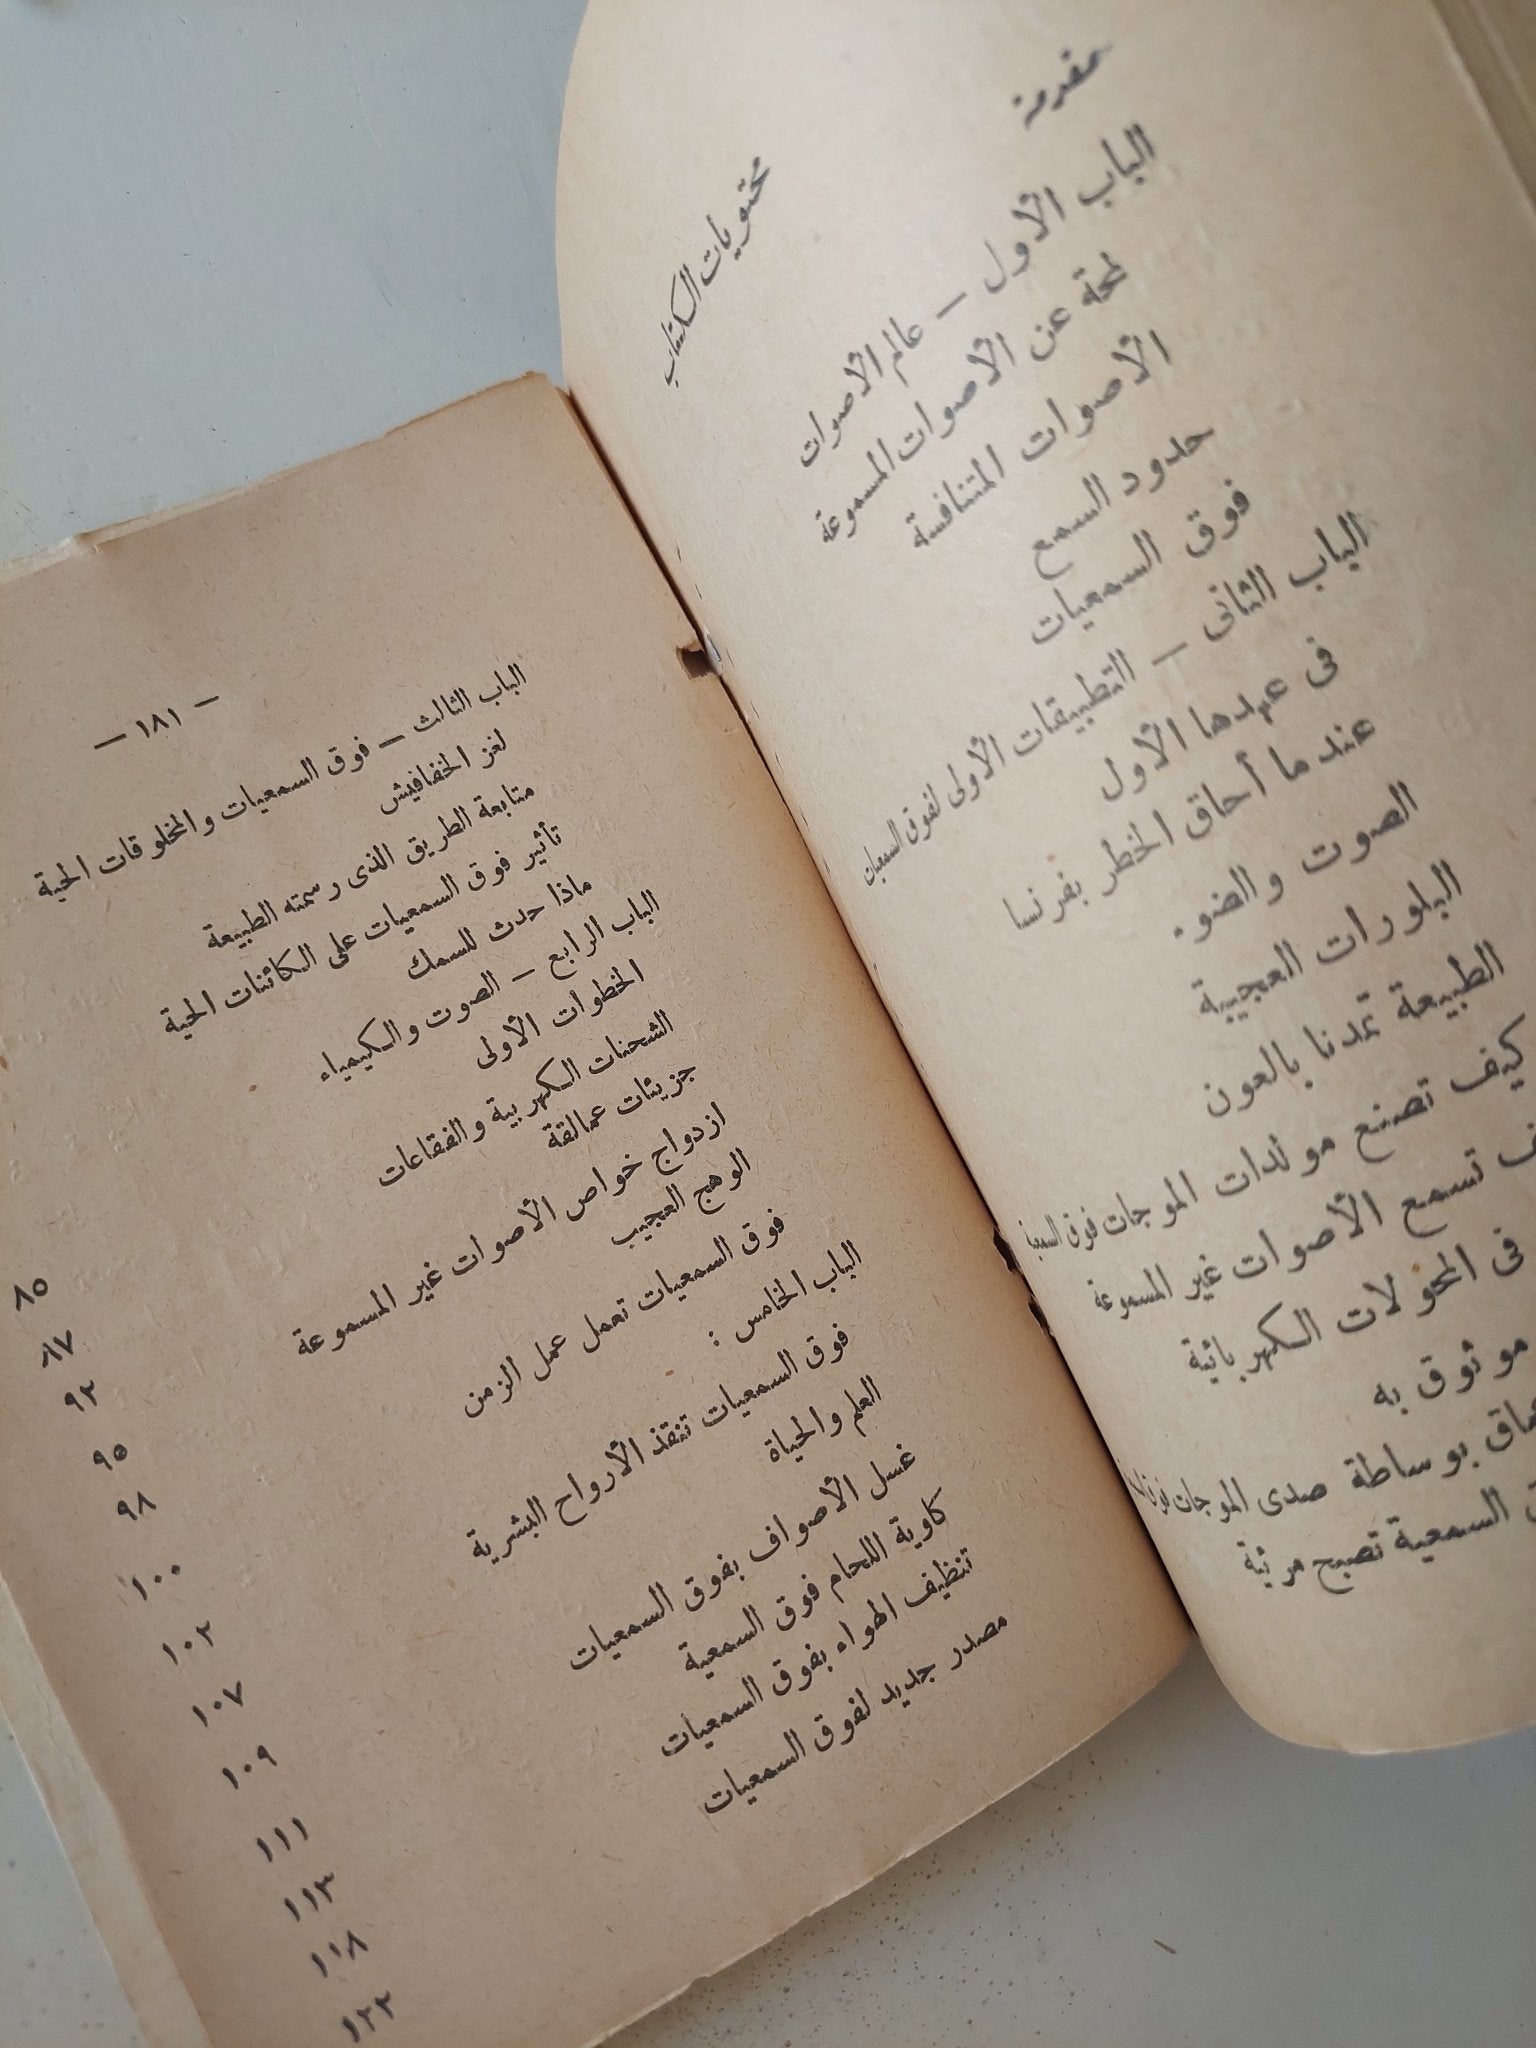 محتويات الكتاب
مقدمة
الباب الأول — عالم الأصوات
لمحة عن الأصوات المسموعة
الأصوات المتنافسة
حدود السمع
فوق السمعيات
الباب الثانى — التطبيقات الأولى لفوق السمعيات
فى عهدها الأول
عندما أحاق الخطر بفرنسا
الصوت والضوء
البلورات العجيبة
الطبيعة تمدنا بالعون
كيف تصنع مولدات الموجات فوق السمعية
تسمع الأصوات غير المسموعة
فى المحولات الكهربائية
موثوق به
بوساطة صدى الموجات فوق
السمعية تصبح مرئية
— ١٨١ —
الباب الثالث — فوق السمعيات والمخلوقات الحية
لغز الخفافيش
متابعة الطريق الذى رسمته الطبيعة
تأثير فوق السمعيات على الكائنات الحية
ماذا حدث للسمك
الباب الرابع — الصوت والكيمياء
الخطوات الأولى
الشحنات الكهربية والفقاعات
جزيئات عمالقة
ازدواج خواص الأصوات غير المسموعة
الوهج العجيب
فوق السمعيات تعمل عمل الزمن
الباب الخامس :
فوق السمعيات تنقذ الأرواح البشرية
العلم والحياة
غسل الأصواف بفوق السمعيات
كاوية اللحام فوق السمعية
تنظيف الهواء بفوق السمعيات
مصدر جديد لفوق السمعيات
٨٥
٨٧
٩٢
٩٥
٩٨
١٠٠
١٠٢
١٠٧
١٠٩
١١١
١١٣
١١٨
١٢٢